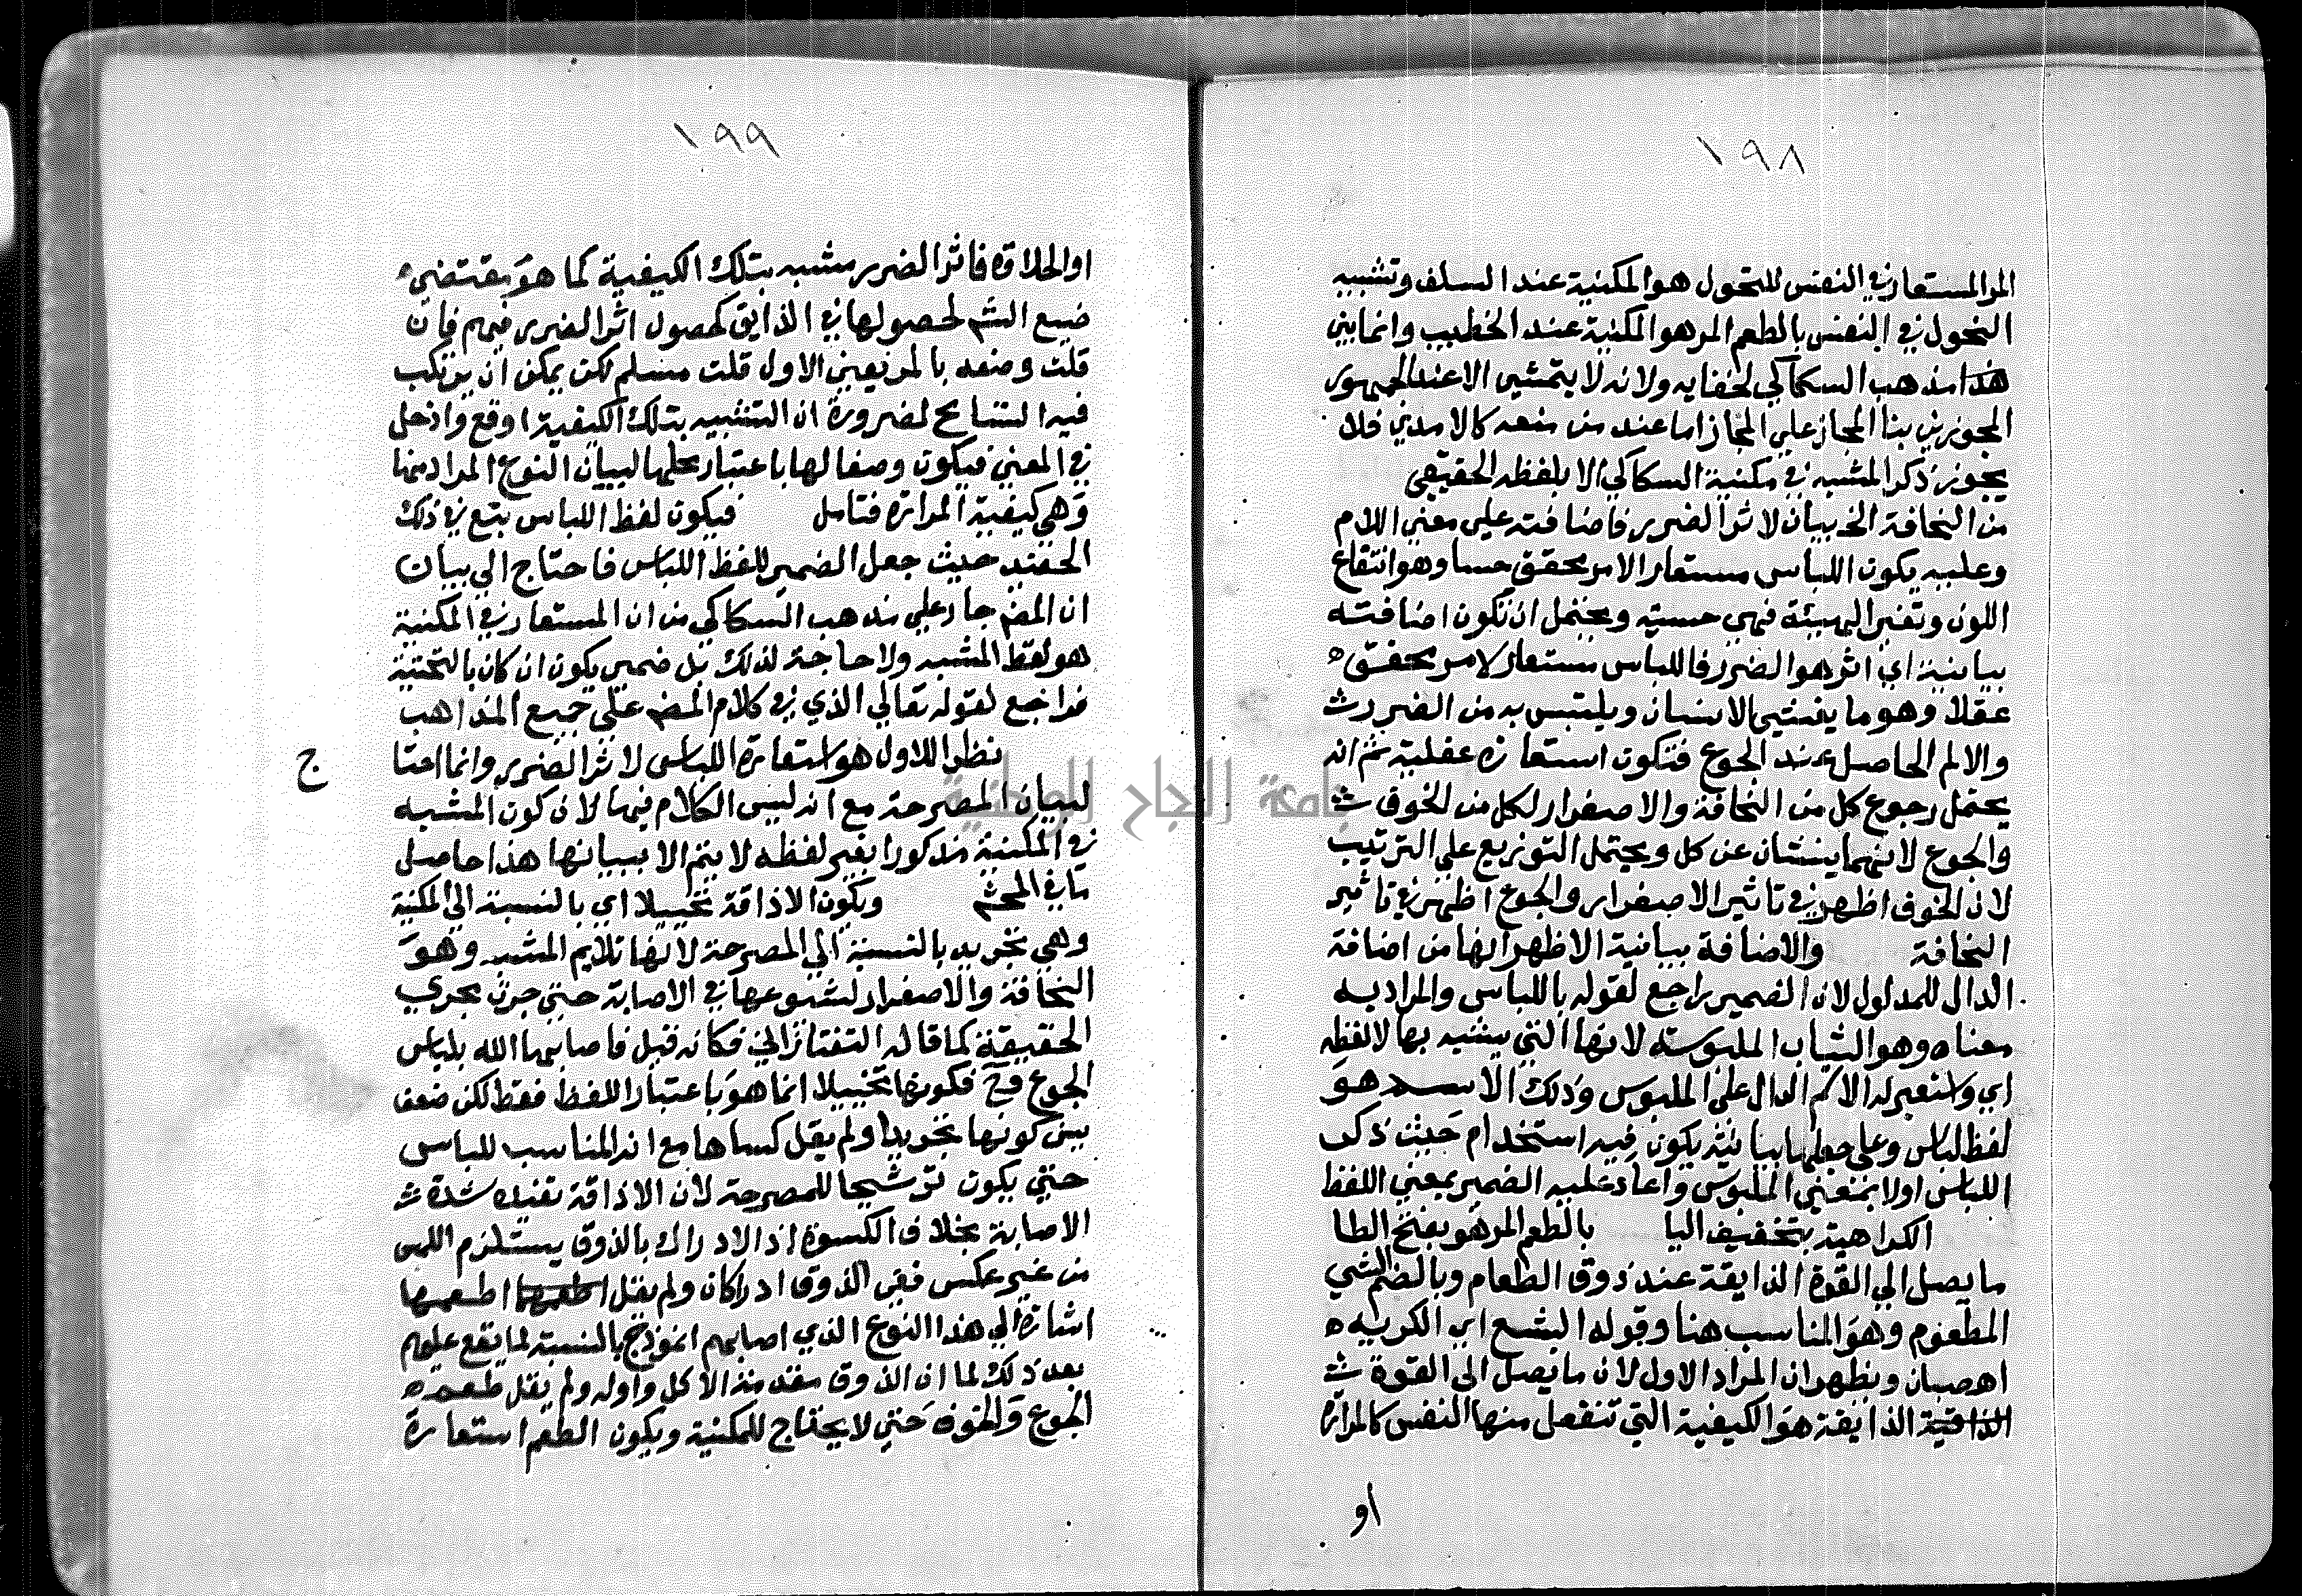 ١٩٨
المر المستعار في النفس للتحول هو المكنية عند السلف وتشبيه
التحول في النفس بالطعم المر هو المكنية عند الخطيب وانما يبني
هذا مذهب السكاكي لخفايه ولانه لا يتمشي الا عند الجمهور
المجوزين بنا المجاز علي المجاز اما عند من منعه كالامدي فلا
يجوز ذكر المشبه في مكنية السكاكي الا بلفظه الحقيقي
من النحافة الخ بيان لاثر الضرر فاضافته علي معني اللام
وعليه يكون اللباس مستعارا لامر محقق حسا وهو انتقاع
اللون وتغير الهيئة فهي حسية ويحتمل ان تكون اضافته
بيانية اي اثر هو الضرر فاللباس مستعار لامر محقق
عقلا وهو ما يغشي الانسان ويلتبس به من الضرر
والالم الحاصل عند الجوع فتكون استعارة عقلية ثم انه
يحتمل رجوع كل من النحافة والاصفرار لكل من الخوف
والجوع لانهما ينشان عن كل ويحتمل التوزيع علي الترتيب
لان الخوف اظهر في تاثير الاصفرار والجوع اظهر في تاثير
النحافة والاضافة بيانية الاظهر انها من اضافة
الدال للمدلول لان الضمير راجع لقوله باللباس والمراد به
معناه وهو الثياب الملبوسة لانها التي يشبه بها لا لفظه
اي واستعير له الاسم الدال علي الملبوس وذلك الاسم هو
لفظ لباس وعلي جعلها بيانية يكون فيه استخدام حيث ذكر
اللباس اولا بمعني الملبوس واعاد عليه الضمير بمعني اللفظ
الكراهية بتخفيف اليا بالطعم المر هو بفتح الطا
ما يصل الي القوة الذايقة عند ذوق الطعام وبالضم الشي
المطعوم وهو المناسب هنا وقوله البشع اي الكريه
اه صبان ويظهر ان المراد الاول لان ما يصل الي القوة
الذايقة هو الكيفية التي تنفعل منها النفس كالمرارة
او
١٩٩
او الحلاوة فاثر الضرر مشبه بتلك الكيفية كما هو مقتضي
صنيع الشم لحصولها في الذايق كحصول اثر الضرر فيهم فان
قلت وصفه بالمر يعين الاول قلت مسلم لكن يمكن ان يرتكب
فيه التسامح لضرورة ان التشبيه بتلك الكيفية اوقع وادخل
في المعني فيكون وصفا لها باعتبار محلها لبيان النوع المراد منها
وهي كيفية المرارة فتامل فيكون لفظ اللباس بتع في ذلك
الحفيد حيث جعل الضمير للفظ اللباس فاحتاج الي بيان
ان المصم جار علي مذهب السكاكي من ان المستعار في المكنية
هو لفظ المشبه ولا حاجة لذلك بل ضمير يكون ان كان بالتحتية
فراجع لقوله تعالي الذي في كلام المصم علي جميع المذاهب
نظرا للاول هو استعارة اللباس لاثر الضرر وانما احتا
ج
لبيان المصرحة مع انه ليس الكلام فيها لان كون المشبه
في المكنية مذكورا بغير لفظه لا يتم الا ببيانها هذا حاصل
ما في المحشم ويكون الاذاقة تخييلا اي بالنسبة الي المكنية
وهي تجريد بالنسبة الي المصرحة لانها تلايم المشبه وهو
النحافة والاصفرار لشيوعها في الاصابة حتي جرت مجري
الحقيقة كما قاله التفتازاني فكانه قيل فاصابها الله بلباس
الجوع وح فكونها تخييلا انما هو باعتبار اللفظ فقط لكن ضعف
بين كونها تجريدا ولم يقل كساها مع انه المناسب للباس
حتي يكون ترشيحا للمصرحة لان الاذاقة تفيد شدة
الاصابة بخلاف الكسوة اذ الادراك بالذوق يستلزم اللمس
من غير عكس ففي الذوق ادراكان ولم يقل اطعمها
اشارة الي هذا النوع الذي اصابهم انموذج بالنسبة لما يقع عليهم
بعد ذلك لما ان الذوق مقدمة الاكل واوله ولم يقل طعم
الجوع والخوف حتي لا يحتاج للمكنية ويكون الطعم استعارة
جامعة النجاح الوطنية